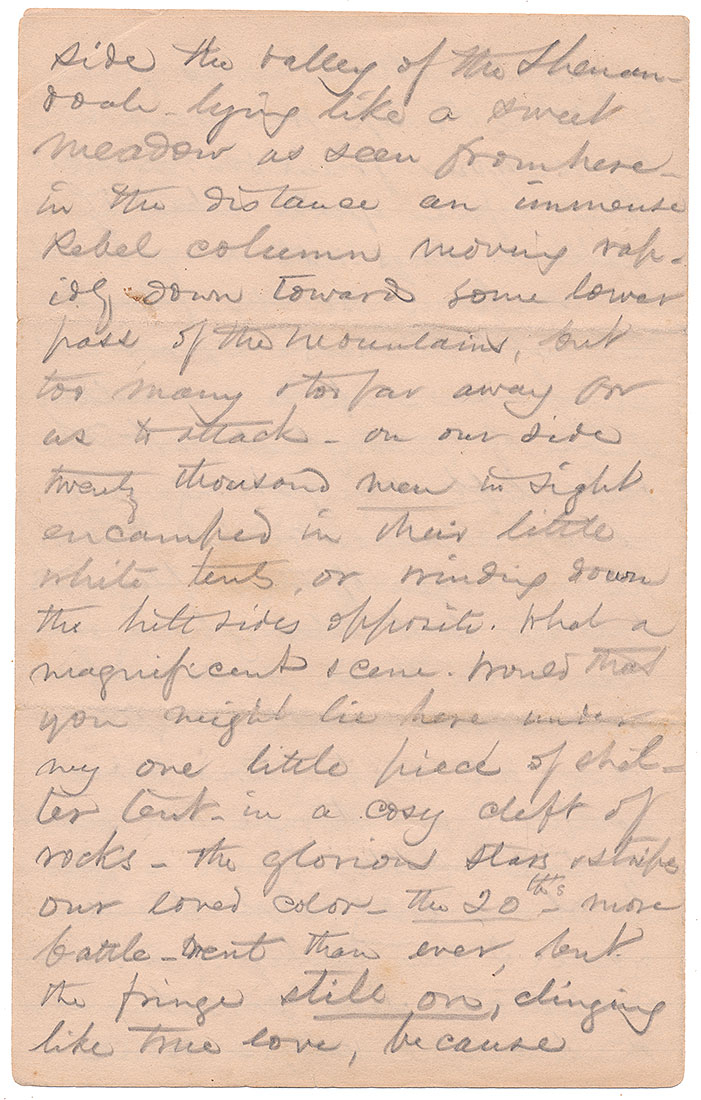 side the valley of the Shenan-
doah - lying like a sweet
meadow as seen from here -
in the distance an immense
Rebel column moving rap-
idly down toward some lower
pass of the mountains, but
too many & too far away for
us to attack - on our side
twenty thousand men in sight
encamped in their little
white tents, or winding down
the hill sides opposite. What a
magnificent scene. Would that
you might lie here under
my one little piece of shel-
ter tent - in a cosy cleft of
rocks - the glorious stars & stripes
our loved color - the 20th's - more
battle-rent than ever, but
the fringe still on, clinging
like true love, because